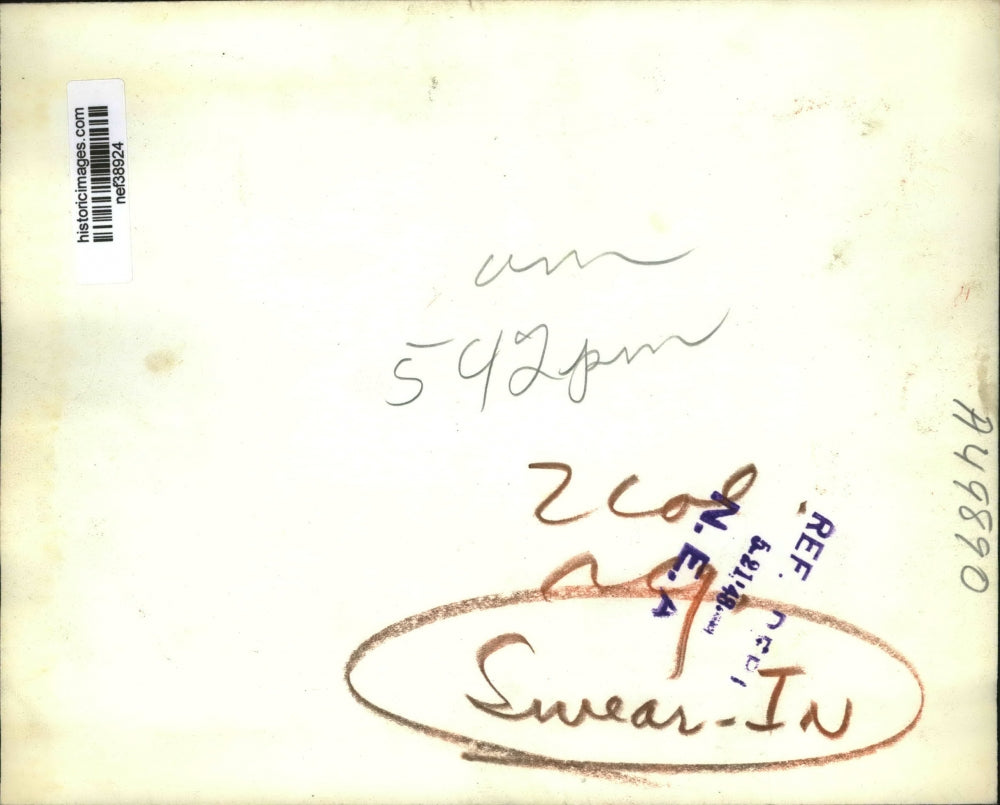 historicimages.com
nef38924
am
542pm
2 Col
N. E. A
REF. DEPT
Swear-In
A49890